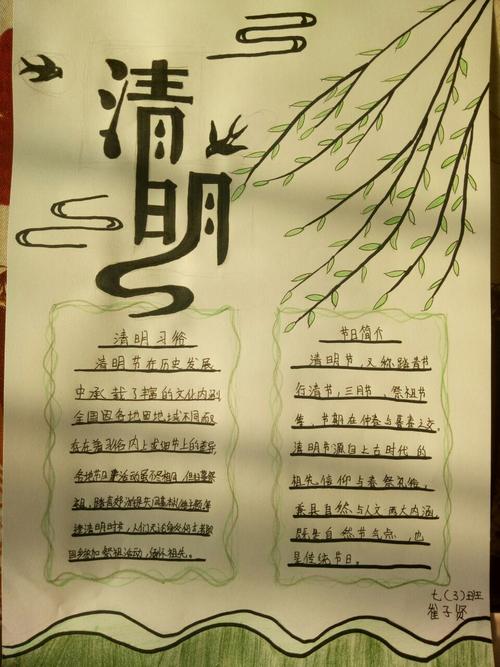 清明
清明习俗
清明节在历史发展
中承载了丰富的文化内涵
全国因各地因地域不同而
存在着习俗内上或细节上的差异
各地节日活动虽不尽相同，但扫墓祭
祖、踏青郊游是共同基本礼俗主题，每
逢清明时节，人们无论身处何方都
回乡参加祭祖活动，缅怀祖先。
节日简介
清明节，又称踏青节
行清节，三月节、祭祖节
等，节期在仲春与暮春之交。
清明节源自上古时代的
祖先信仰与春祭礼俗，
兼具自然与人文两大内涵，
既是自然节气点，也
是传统节日。
七(3)班
崔子贤